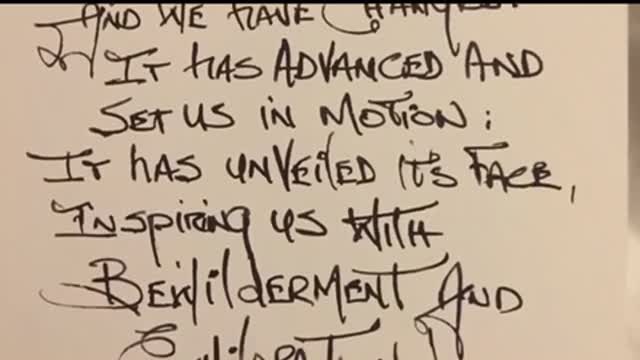 AND WE HAVE CHANGED.
IT HAS ADVANCED AND
SET US IN MOTION;
IT HAS UNVEILED IT'S FACE,
INSPIRING US WITH
BEWILDERMENT AND